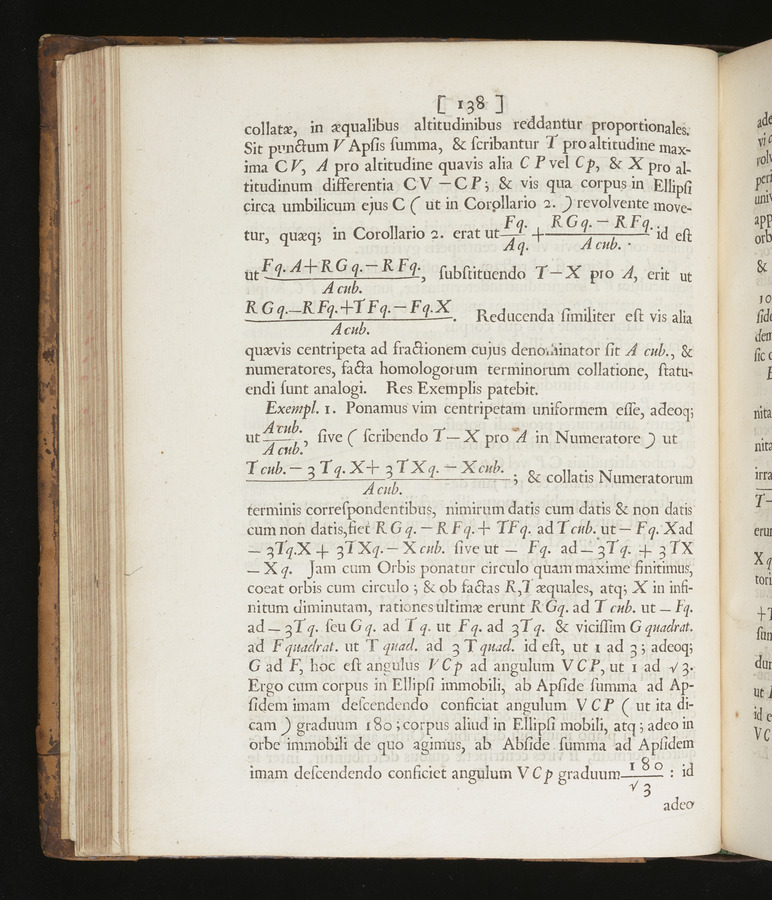 [ 138 ]
collatæ, in æqualibus altitudinibus reddantur proportionales.
Sit punctum V Apsis summa, & scribantur T pro altitudine max-
ima CV, A pro altitudine quavis alia CP vel Cp, & X pro al-
titudinum differentia CV — CP; & vis qua corpus in Ellipsi
circa umbilicum ejus C ( ut in Corollario 2. ) revolvente move-
tur, quæq; in Corollario 2. erat ut Fq./Aq. + RGq. — RFq./A cub. id est
ut Fq. A + RGq. — RFq./A cub., substituendo T — X pro A, erit ut
RGq. — RFq. + TFq. — Fq. X/A cub. Reducenda similiter est vis alia
quævis centripeta ad fractionem cujus denominator sit A cub., &
numeratores, facta homologorum terminorum collatione, statu-
endi sunt analogi. Res Exemplis patebit.
Exempl. 1. Ponamus vim centripetam uniformem esse, adeoq;
ut A cub./A cub., sive ( scribendo T — X pro A in Numeratore ) ut
T cub. — 3 Tq. X + 3 TXq. — X cub./A cub.; & collatis Numeratorum
terminis correspondentibus, nimirum datis cum datis & non datis
cum non datis, fiet RGq. — RFq. + TFq. ad T cub. ut — Fq. X ad
— 3Tq.X + 3TXq. — X cub. sive ut — Fq. ad — 3Tq. + 3TX
— Xq. Jam cum Orbis ponatur circulo quam maxime finitimus,
coeat orbis cum circulo ; & ob factas R, T æquales, atq; X in infi-
nitum diminutam, rationes ultimæ erunt RGq. ad T cub. ut — Fq.
ad — 3Tq. seu Gq. ad Tq. ut Fq. ad 3Tq. & vicissim G quadrat.
ad F quadrat. ut T quad. ad 3 T quad. id est, ut 1 ad 3 ; adeoq;
G ad F, hoc est angulus VCp ad angulum VCP, ut 1 ad √3.
Ergo cum corpus in Ellipsi immobili, ab Apside summa ad Ap-
sidem imam descendendo conficiat angulum VCP ( ut ita di-
cam ) graduum 180 ; corpus aliud in Ellipsi mobili, atq ; adeo in
orbe immobili de quo agimus, ab Abside summa ad Apsidem
imam descendendo conficiet angulum VCp graduum 180/√3 : id
adeo